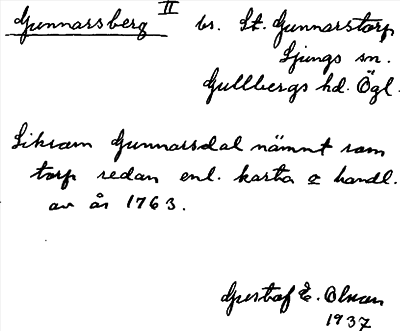 Gunnarsberg II br. St. Gunnarstorp
Ljungs sn.
Gullbergs hd. Ögl.
Liksom Gunnarsdal nämnt som
torp redan enl. karta o handl.
av år 1763.
Gustaf E. Olson
1937